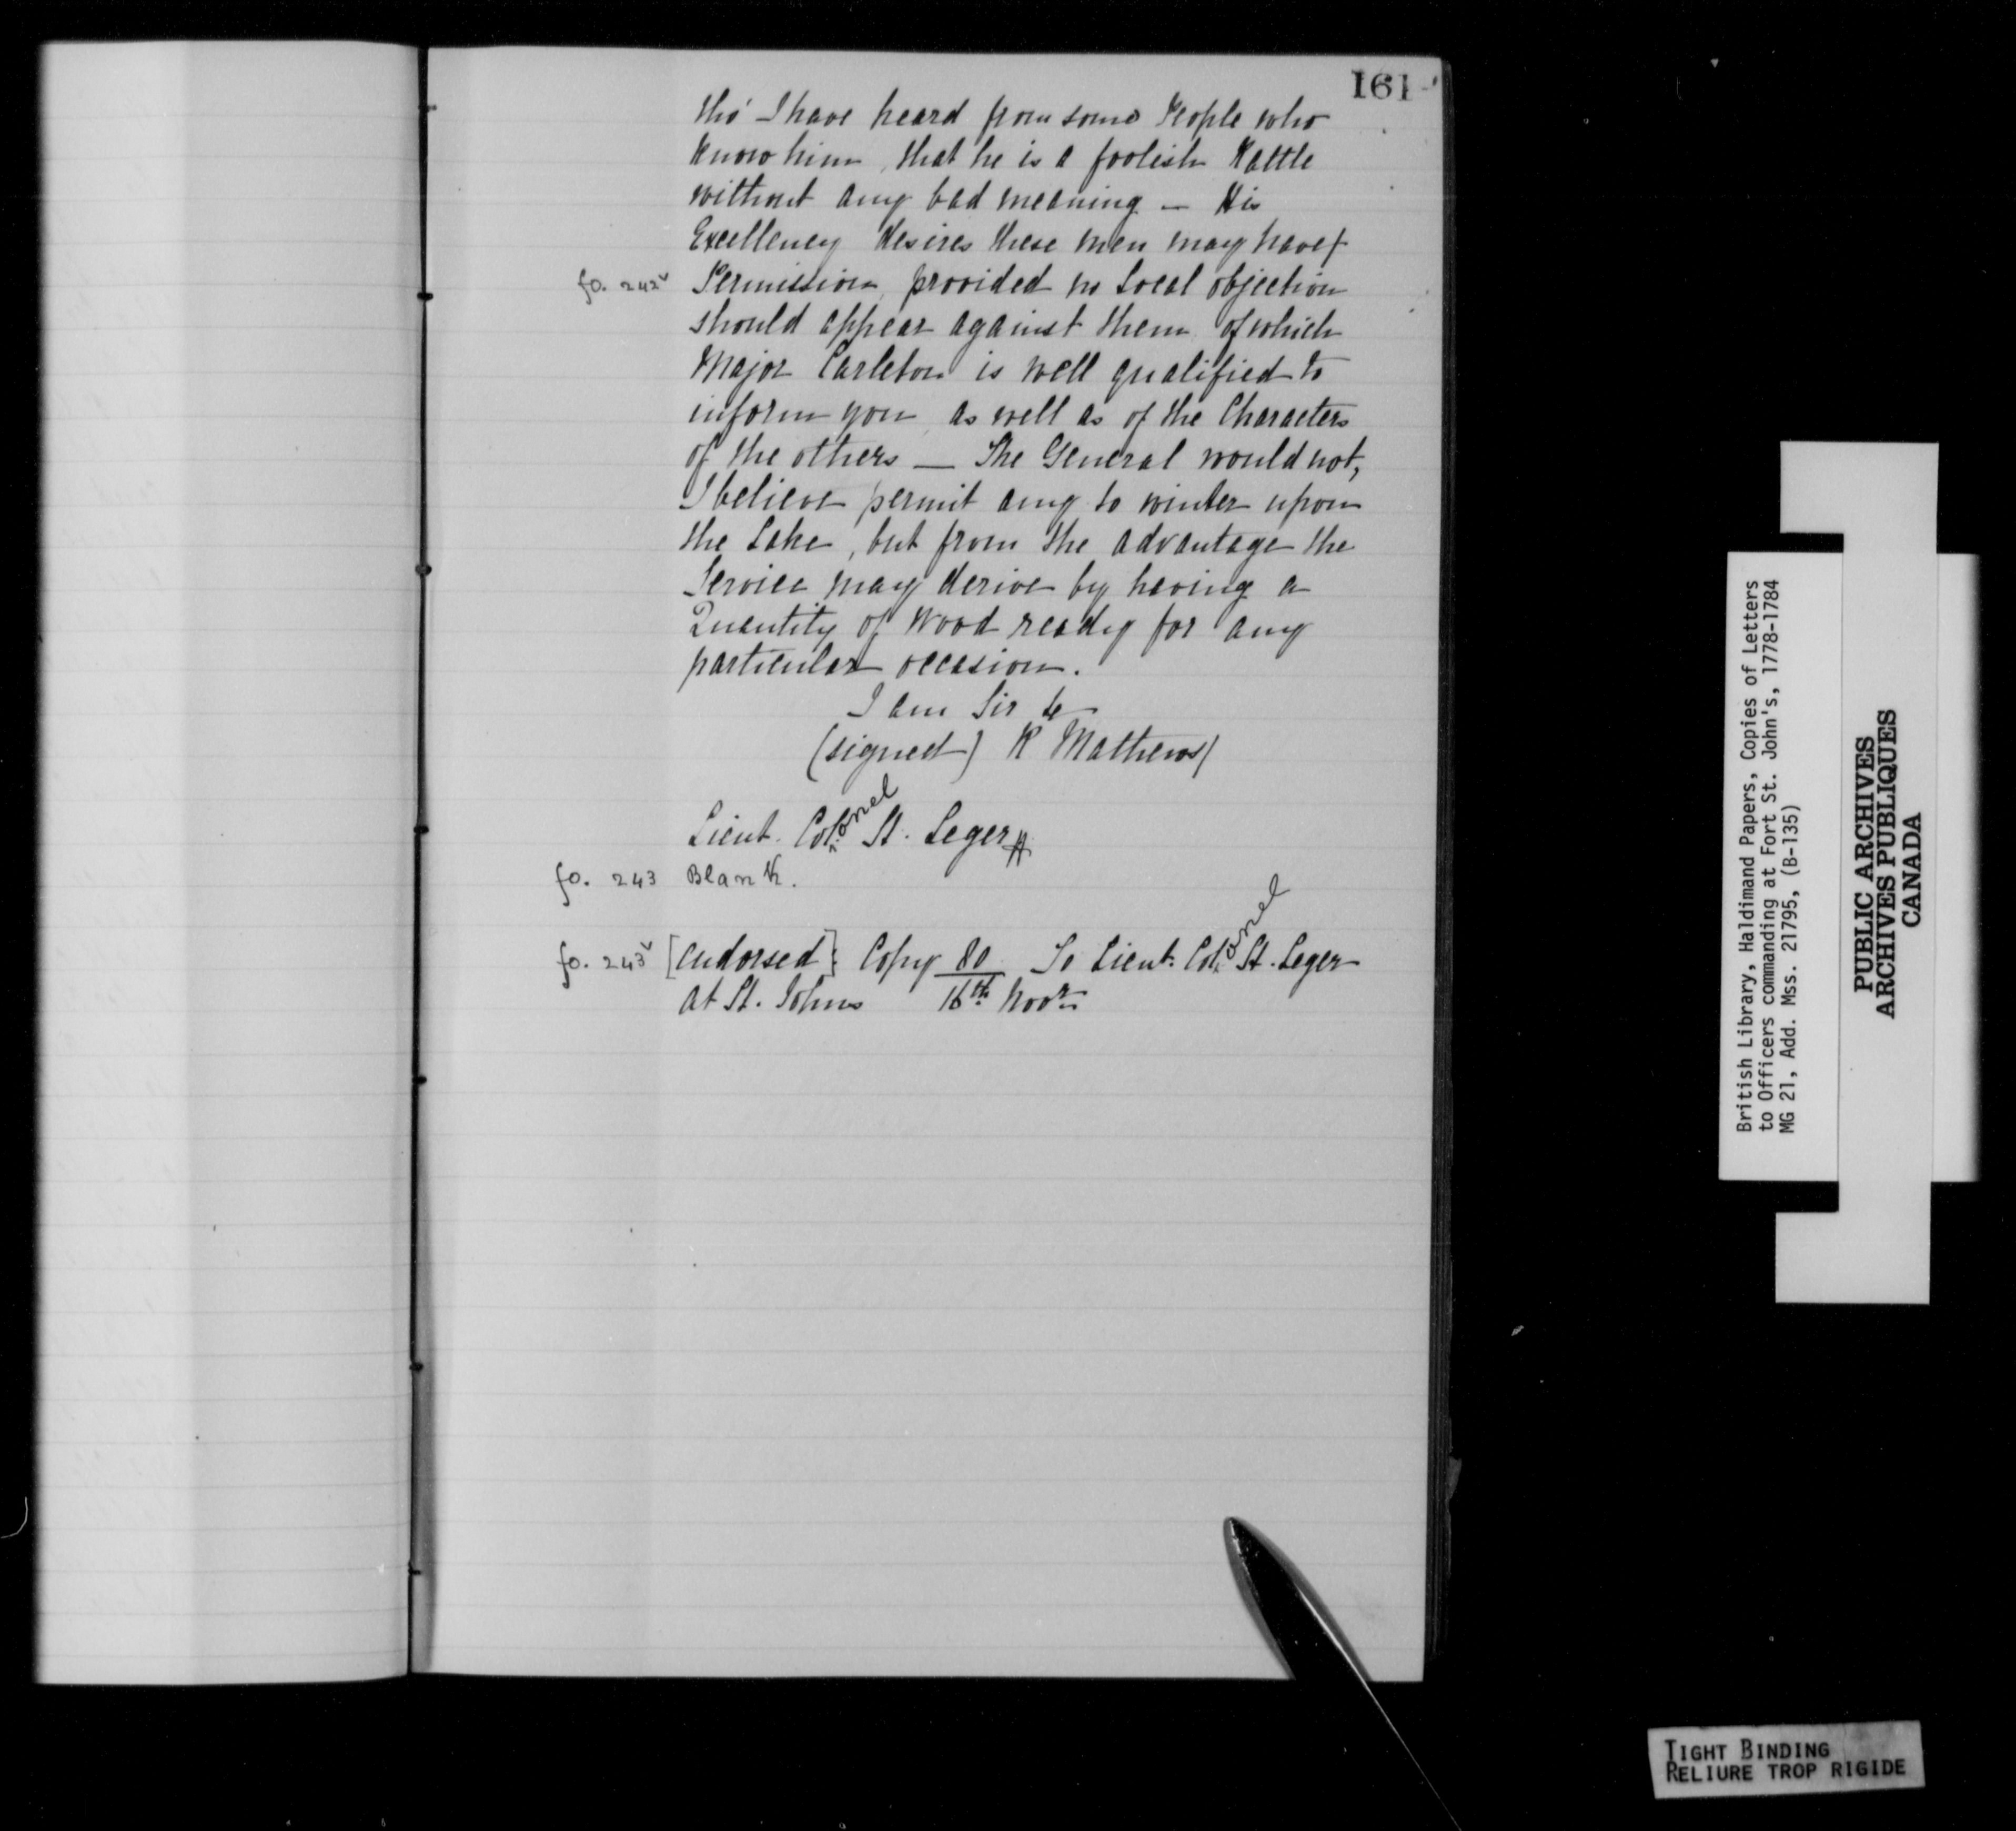 161
tho' I have heard from some People who
know him, that he is a foolish Rattle
without any bad meaning — His
Excellency desires these men may have/
fo. 242v Permission, provided no Local objection
should appear against them, of which
Major Carleton is well qualified to
inform you, as well as of the Characters
of the others — The General would not,
I believe permit any to winter upon
the Lake, but from the advantage the
Service may derive by having a
Quantity of Wood ready for any
particular occasion.
I am Sir &c
(signed) R Mathews/
Lieut. Colonel St. Leger
fo. 243 Blank.
fo. 243v [endorsed]: Copy 80 To Lieut. Colonel St. Leger
at St. Johns 16th Novr
British Library, Haldimand Papers, Copies of Letters
to Officers commanding at Fort St. John's, 1778-1784
MG 21, Add. Mss. 21795, (B-135)
PUBLIC ARCHIVES
ARCHIVES PUBLIQUES
CANADA
TIGHT BINDING
RELIURE TROP RIGIDE